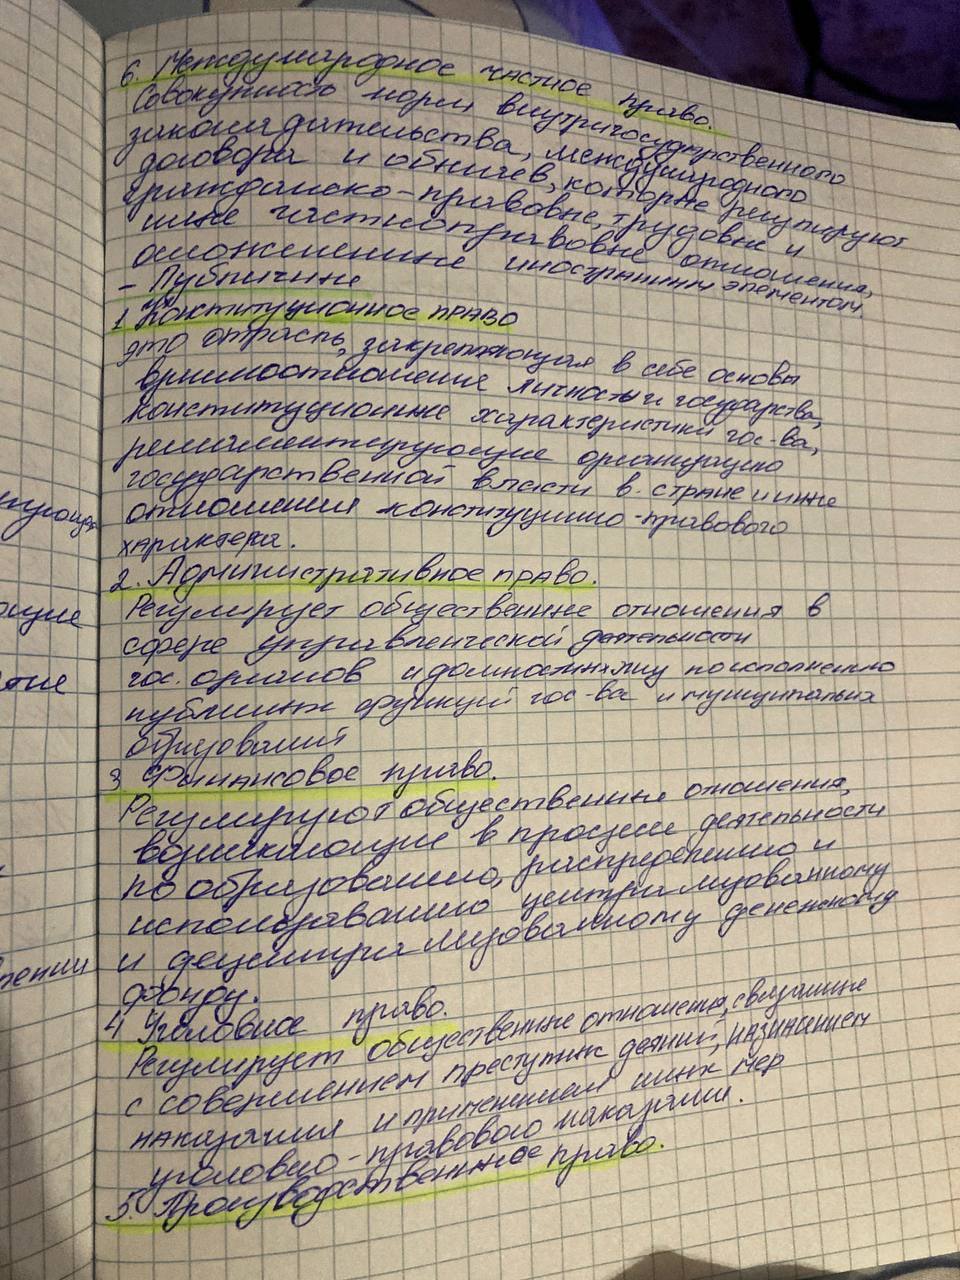 6. Международное частное право.
Совокупность норм внутригосударственного
законодательства, международного
договора и обычаев, которые регулируют
гражданско-правовые, трудовые и
иные частноправовые отношения,
осложненные иностранным элементом.
- Публичные
1 Конституционное право
это отрасль, закрепляющая в себе основы
взаимоотношение личности и государства,
конституционные характеристики гос-ва,
регламентирующие организацию
государственной власти в стране и иные
отношения конституционно-правового
характера.
2. Административное право.
Регулирует общественные отношения в
сфере управленческой деятельности
гос. органов и должностных лиц по исполнению
публичных функций гос-ва и муниципальных
образований
3 Финансовое право.
Регулируют общественные отношения,
возникающие в процессе деятельности
по образованию, распределению и
использованию централизованному
и децентрализованному денежному
фонду.
4 Уголовное право.
Регулирует общественные отношения, связанные
с совершением преступных деяний, назначением
наказания и применением иных мер
уголовно-правового наказания.
5. Производственное право.
ющие